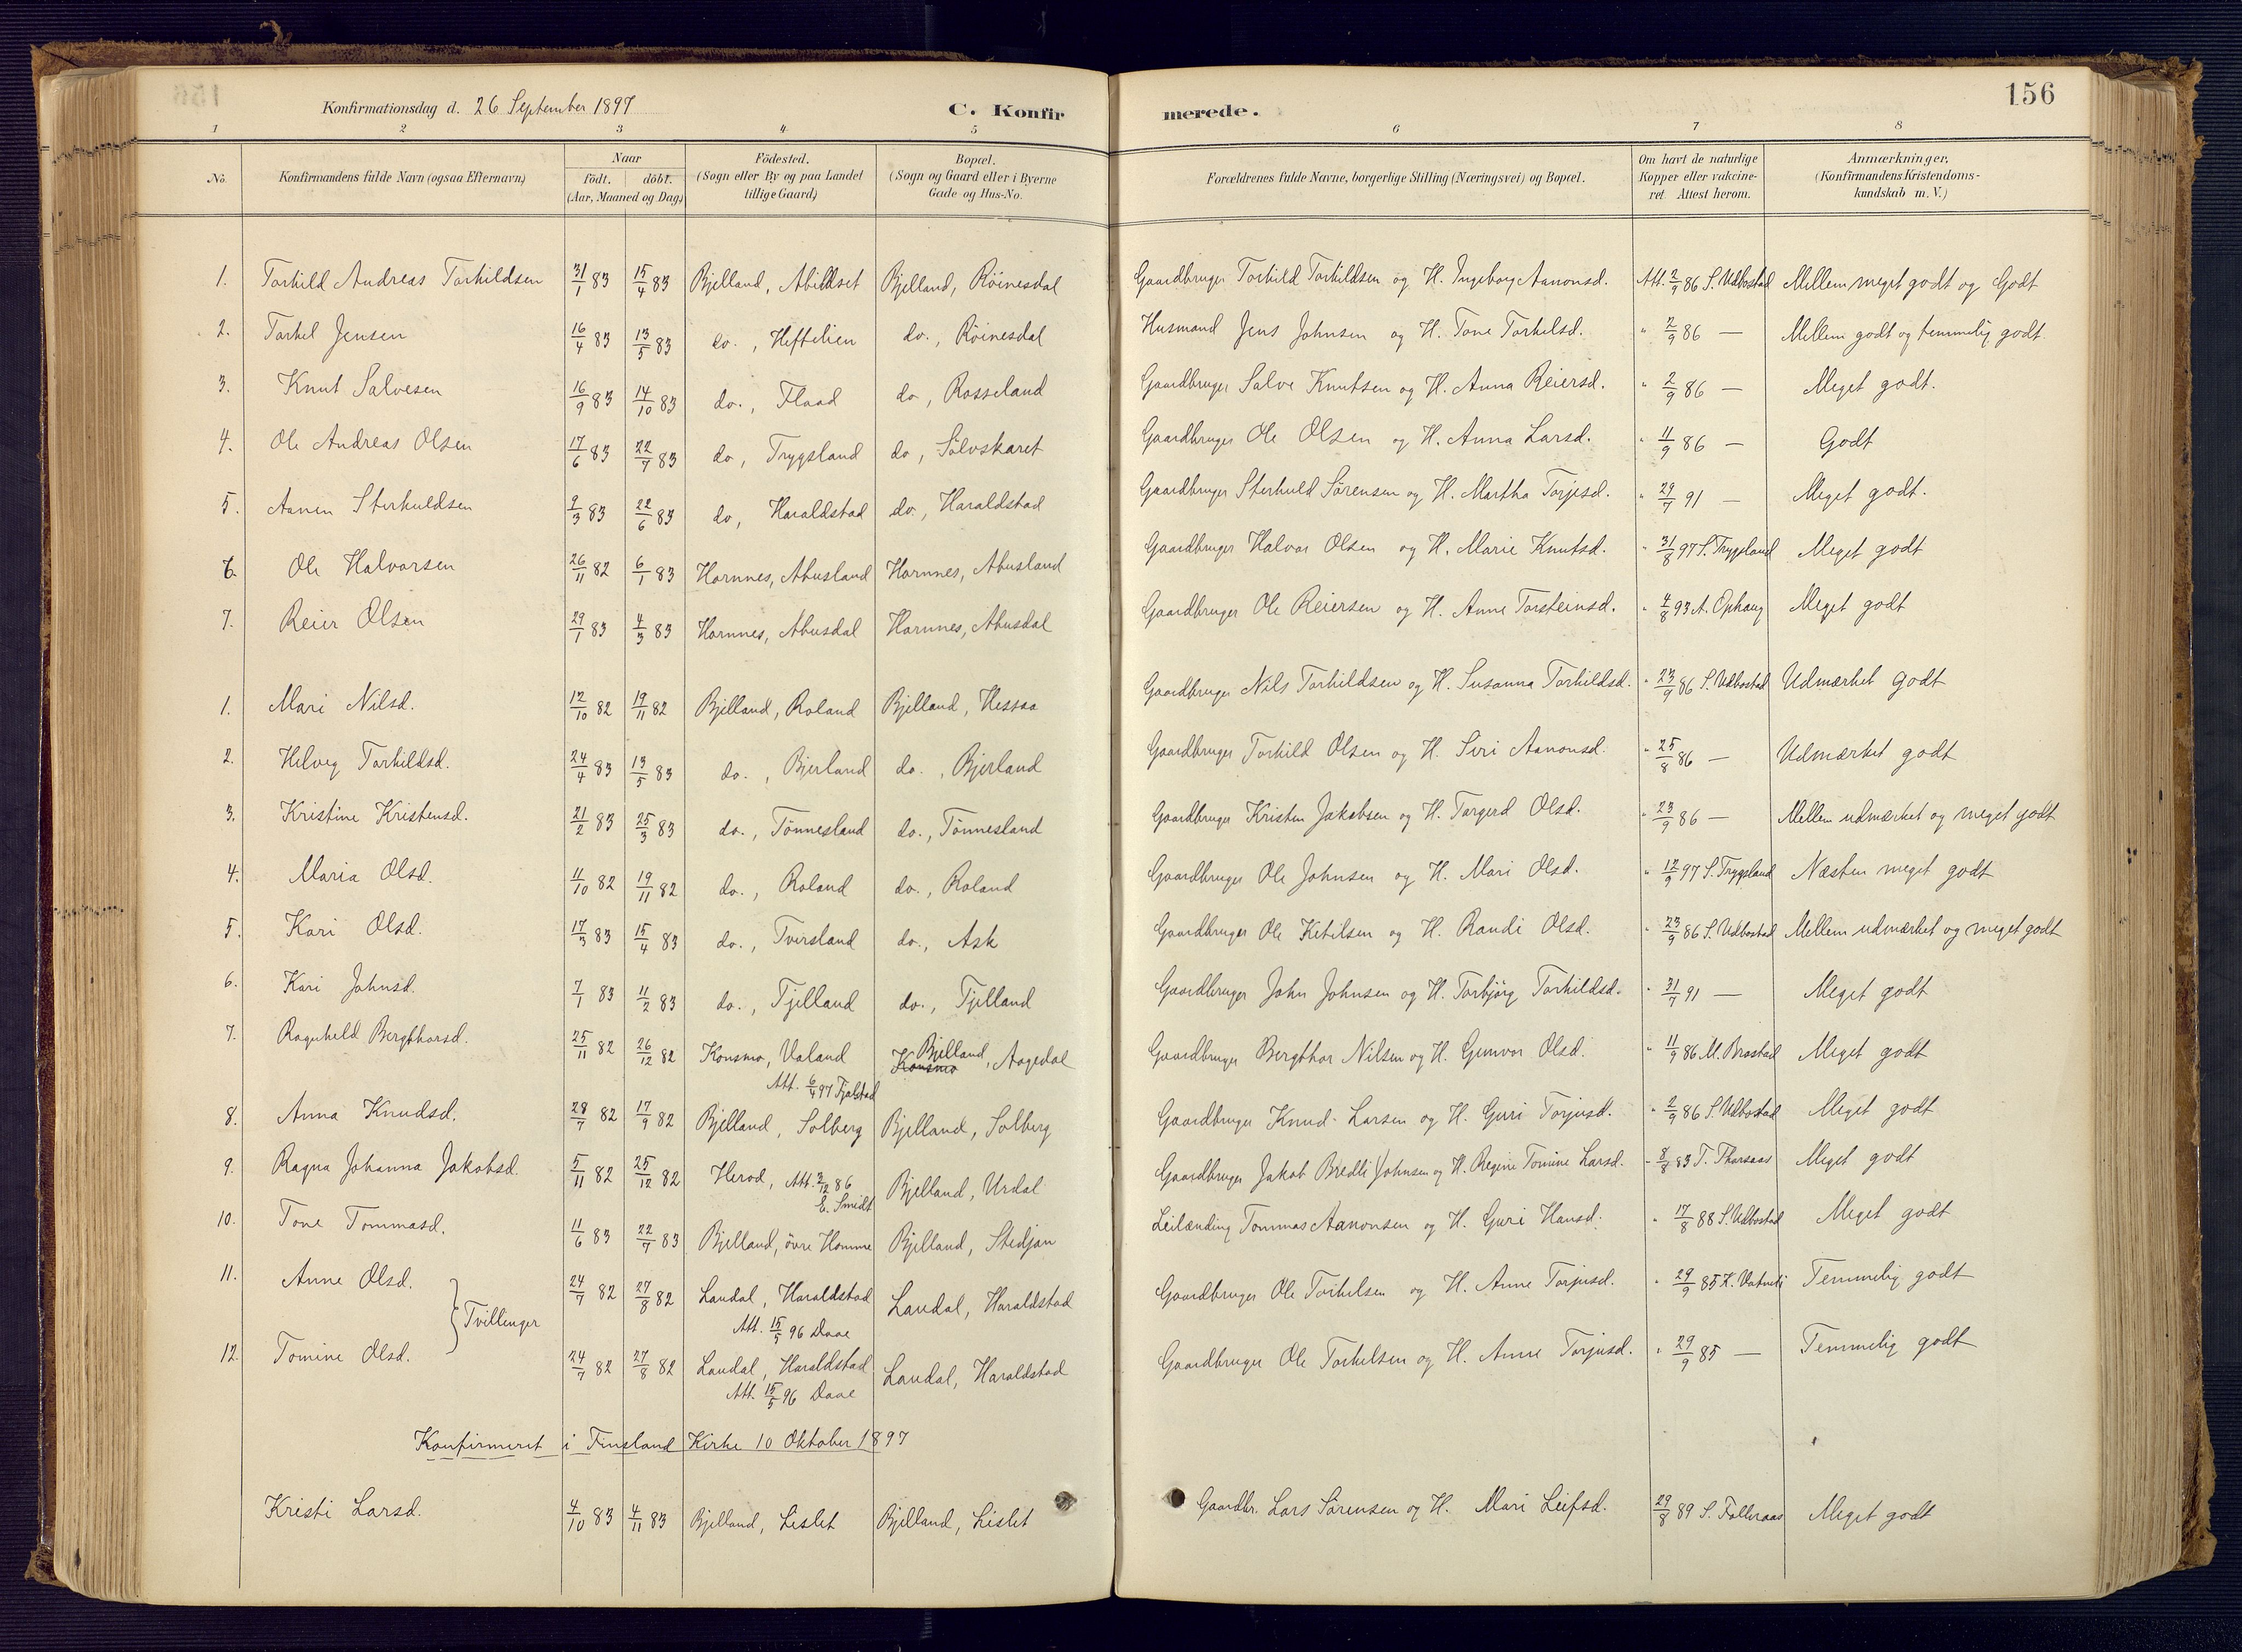 156
Konfirmationsdag d. 26 September 1897 C. Konfirmerede.
1 2 3 4 5 6 7 8
No. Konfirmandens fulde Navn (ogsaa Efternavn) Naar födt. döbt. (Aar, Maaned og Dag.) Födested. (Sogn eller By og paa Landet tillige Gaard) Bopæl. (Sogn og Gaard eller i Byerne Gade og Hus-No. Forældrenes fulde Navne, borgerlige Stilling (Næringsvei) og Bopæl. Om havt de naturlige Kopper eller vakcineret. Attest herom. Anmærkninger. (Konfirmandens Kristendomskundskab m. V.)
1. Torkild Andreas Torkildsen 31/1 83 15/4 83 Bjelland, Abildset Bjelland, Röinesdal Gaardbruger Torkild Torkildsen og H. Ingeborg Aanonsd. Att. 2/9 86 S. Udbostad Mellem meget godt og Godt
2. Torkel Jensen 16/4 83 13/5 83 do., Heftelien do., Röinesdal Husmand Jens Johnsen og H. Tone Torkelsd. " 2/9 86 — Mellem godt og temmelig godt.
3. Knut Salvesen 16/9 83 14/10 83 do., Flaad do, Rosseland Gaardbruger Salve Knutsen og H. Anna Reiersd. " 2/9 86 — Meget godt.
4. Ole Andreas Olsen 17/6 83 22/7 83 do, Trygsland do, Sölvskaret Gaardbruger Ole Olsen og H. Anna Larsd. " 11/9 86 — Godt
5. Aanen Sterkuldsen 9/3 83 22/6 83 do, Haraldstad do., Haraldstad Gaardbruger Sterkuld Sörensen og H. Martha Torjesd. " 29/7 91 — Meget godt.
6. Ole Halvorsen 26/11 82 6/1 83 Hornnes, Abusland Hornnes, Abusland Gaardbruger Halvor Olsen og H. Marie Knutsd. " 31/8 97 S. Trygsland Meget godt
7. Reier Olsen 29/1 83 4/3 83 Hornnes, Abusdal Hornnes, Abusdal Gaardbruger Ole Reiersen og H. Anne Torsteinsd. " 4/8 93 A. Ophaug Meget godt
1. Mari Nilsd. 12/10 82 19/11 82 Bjelland, Roland Bjelland, Hessaa Gaardbruger Nils Torkildsen og H. Susanna Torkildsd. " 23/9 86 S. Udbostad Udmærket godt
2. Helveg Torkildsd. 24/4 83 13/5 83 do., Bjerland do., Bjerland Gaardbruger Torkild Olsen og H. Siri Aanonsd. " 25/8 86 — Udmærket godt
3. Kristine Kristensd. 21/2 83 25/3 83 do., Tönnesland do., Tönnesland Gaardbruger Kristen Jakobsen og H. Torgerd Olsd. " 23/9 86 — Mellem udmærket og meget godt
4. Maria Olsd. 11/10 82 19/11 82 do., Roland do., Roland Gaardbruger Ole Johnsen og H. Mari Olsd. " 12/9 97 S. Trygsland Næsten meget godt
5. Kari Olsd. 17/3 83 15/4 83 do., Tversland do., Ask Gaardbruger Ole Ketilsen og H. Randi Olsd. " 23/9 86 S. Udbostad Mellem udmærket og meget godt
6. Kari Johnsd. 7/1 83 11/2 83 do., Tjelland do., Tjelland Gaardbruger John Johnsen og H. Torbjörg Torkildsd. " 31/7 91 — Meget godt
7. Ragnheld Bergthorsd. 25/11 82 26/12 82 Konsmo, Valand Att. 6/4 97 Fjalstad Konsmo Bjelland, Aagedal Gaardbruger Bergthor Nilsen og H. Gunvor Olsd. " 11/9 86 M. Brastad Meget godt
8. Anna Knudsd. 28/7 82 17/9 82 Bjelland, Solberg Bjelland, Solberg Gaardbruger Knud Larsen og H. Guri Torjusd. " 2/9 86 S. Udbostad Meget godt
9. Ragna Johanna Jakobsd. 5/11 82 25/12 82 Herod, Att. 2/12 86 E. Smidt Bjelland, Urdal Gaardbruger Jakob Bredli Johnsen og H. Regine Tomine Larsd. " 8/8 83 T. Thorsaas Meget godt
10. Tone Tommasd. 11/6 83 22/7 83 Bjelland, övre Homme Bjelland, Stedjan Leilænding Tommas Aanonsen og H. Guri Hansd. " 17/8 88 S. Udbostad Meget godt
11. Anne Olsd. 24/7 82 27/8 82 Laudal, Haraldstad Att. 15/5 96 Daae Laudal, Haraldstad Gaardbruger Ole Torkelsen og H. Anne Torjusd. " 29/9 85 K. Vatneli Temmelig godt
Tvillinger
12. Tomine Olsd. 24/7 82 27/8 82 Laudal, Haraldstad Att. 15/5 96 Daae Laudal, Haraldstad Gaardbruger Ole Torkelsen og H. Anne Torjusd. " 29/9 85 — Temmelig godt
Konfirmeret i Finsland Kirke 10 Oktober 1897
Kristi Larsd. 4/10 83 4/11 83 Bjelland, Lislet Bjelland, Lislet Gaardbr. Lars Sörensen og H. Mari Leifsd. 29/8 89 S. Folleraas Meget godt